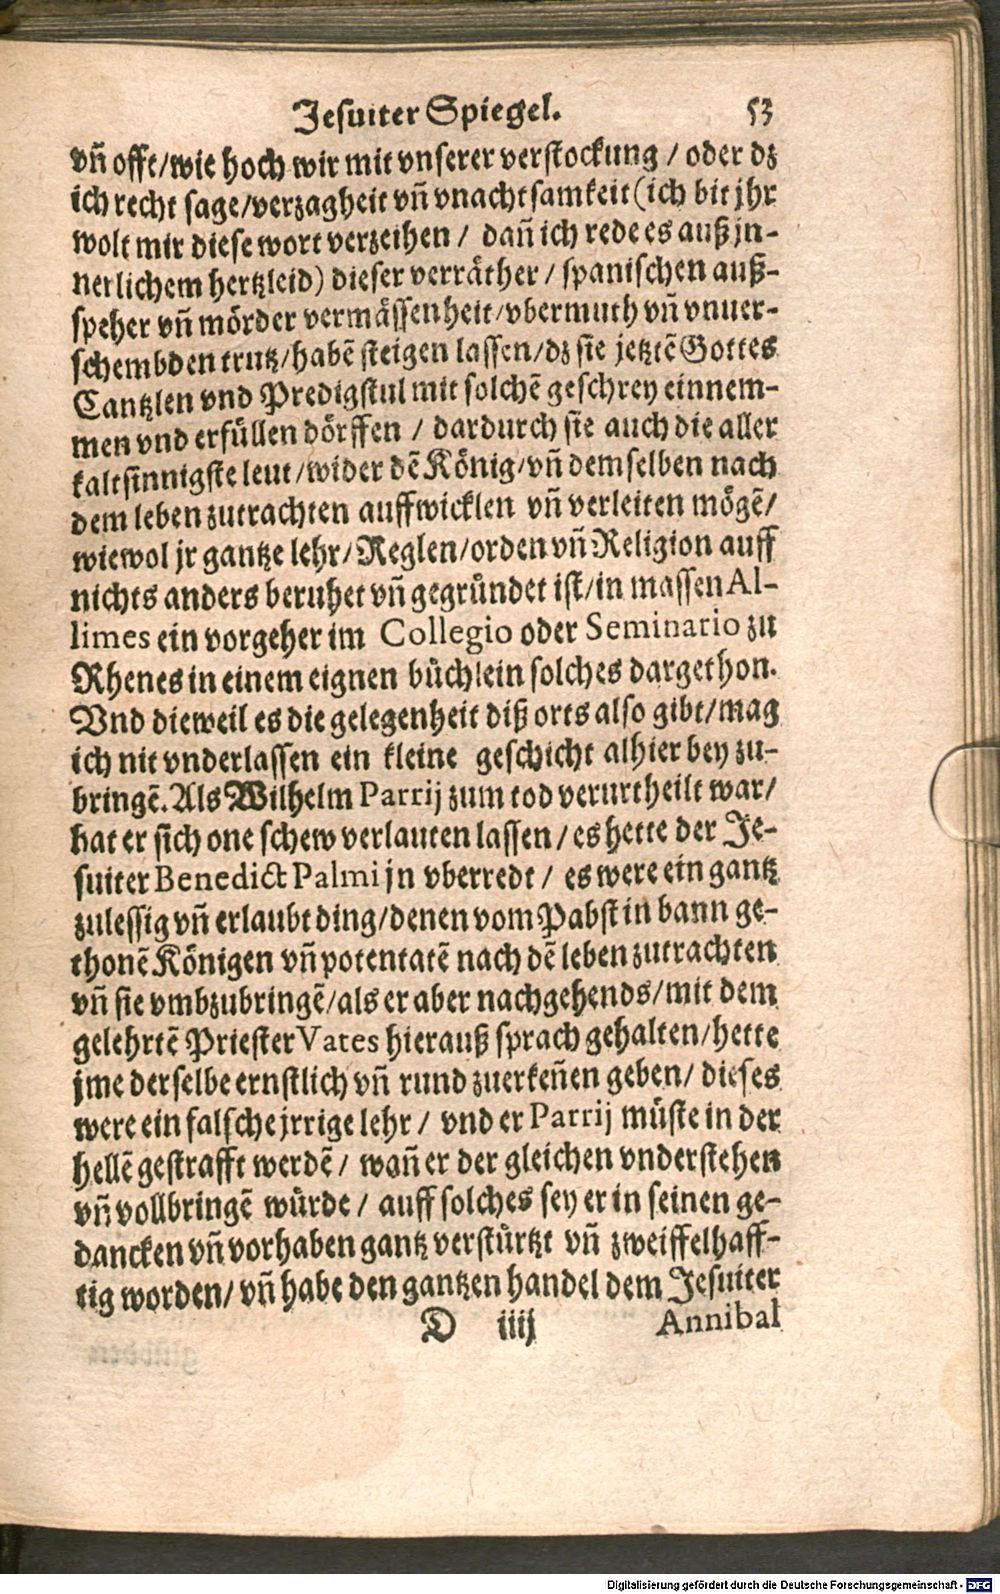 Jesuiter Spiegel. 53
vñ offt/wie hoch wir mit vnserer verstockung / oder dz
ich recht sage/verzagheit vñ vnachtsamkeit (ich bit jhr
wolt mir diese wort verzeihen / dañ ich rede es auß jn-
nerlichem hertzleid) dieser verräther / spanischen auß-
speher vñ mörder vermässenheit/vbermuth vñ vnuer-
schembden trutz/habē steigen lassen/dz sie jetztē Gottes
Cantzlen vnd Predigstul mit solchē geschrey einnem-
men vnd erfüllen dörffen / dardurch sie auch die aller
kaltsinnigste leut/wider dē König/vñ demselben nach
dem leben zutrachten auffwicklen vñ verleiten mögē/
wiewol jr gantze lehr/Reglen/orden vñ Religion auff
nichts anders beruhet vñ gegründet ist/in massen Al-
limes ein vorgeher im Collegio oder Seminario zu
Rhenes in einem eignen büchlein solches dargethon.
Vnd dieweil es die gelegenheit diß orts also gibt/mag
ich nit vnderlassen ein kleine geschicht alhier bey zu-
bringē. Als Wilhelm Parrij zum tod verurtheilt war/
hat er sich one schew verlauten lassen / es hette der Je-
suiter Benedict Palmi jn vberredt / es were ein gantz
zulessig vñ erlaubt ding/denen vom Pabst in bann ge-
thonē Königen vñ potentatē nach dē leben zutrachten
vñ sie vmbzubringē/als er aber nachgehends/mit dem
gelehrtē Priester Vates hierauß sprach gehalten/hette
jme derselbe ernstlich vñ rund zuerkeñen geben/ dieses
were ein falsche jrrige lehr / vnd er Parrij müste in der
hellē gestrafft werdē / wañ er der gleichen vnderstehen
vñ vollbringē würde / auff solches sey er in seinen ge-
dancken vñ vorhaben gantz verstürtzt vñ zweiffelhaff-
tig worden/ vñ habe den gantzen handel dem Jesuiter
D iiij Annibal
Digitalisierung gefördert durch die Deutsche Forschungsgemeinschaft - DFG